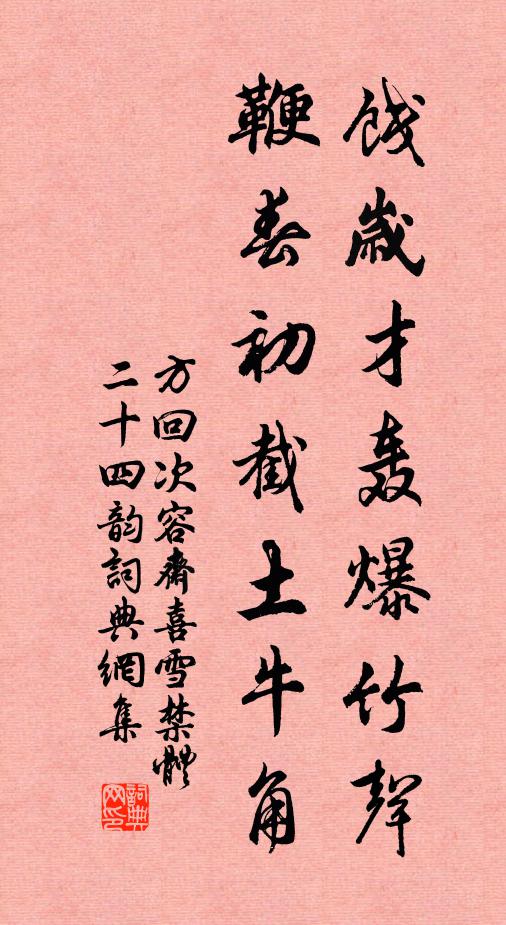 餞歲才轰爆竹聲
鞭春初截土牛角
方回次容齋喜雪禁體
二十四韵詞典網集
詞典網印